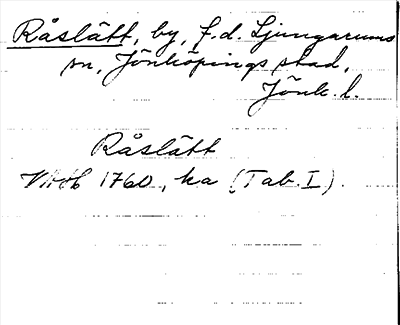 Råslätt, by, f.d. Ljungarums
sn, Jönköpings stad,
Jönk. l.
Råslätt
1760, ka (Tab. I).